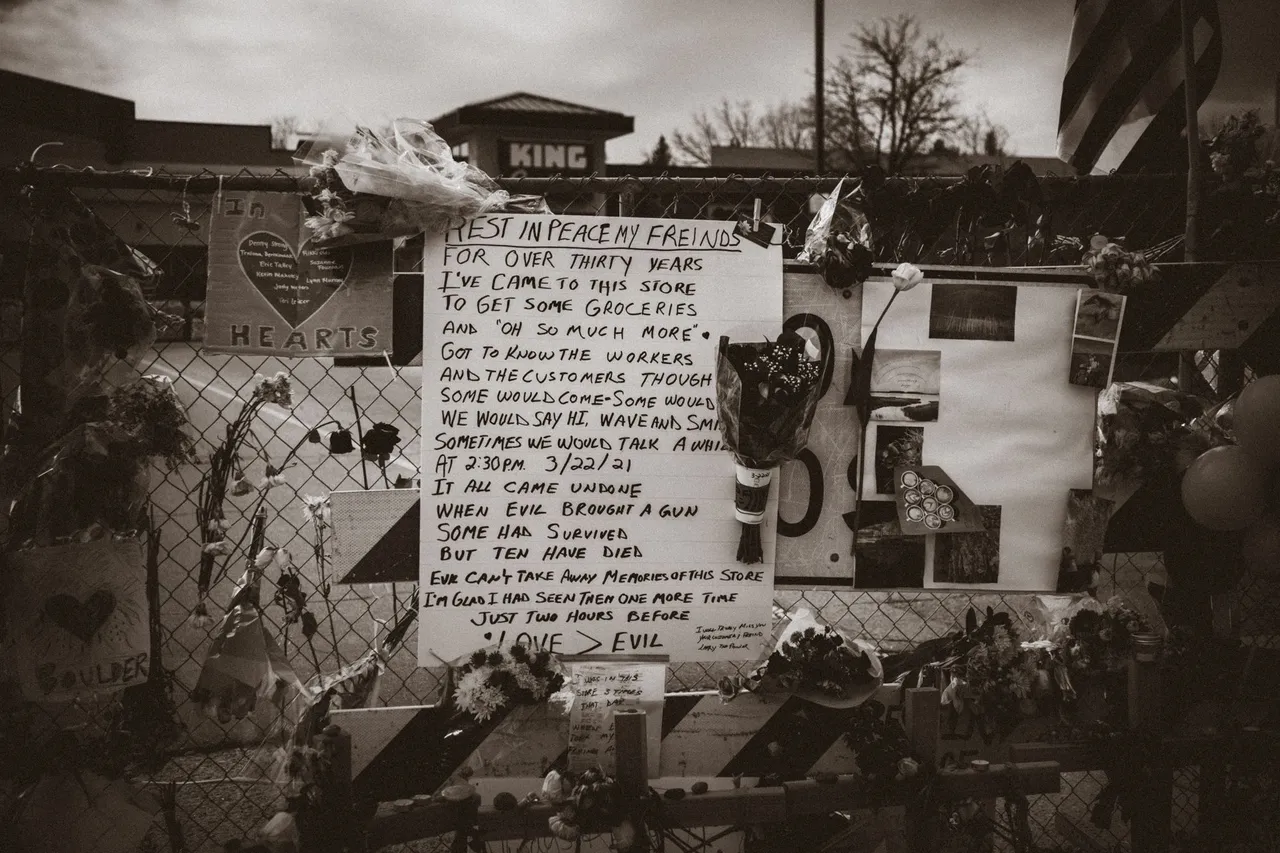 KING
In
Denny Stong
Eric Talley
Kevin Mahoney
Lynn Murray
Teri Leiker
HEARTS
REST IN PEACE MY FREINDS
FOR OVER THIRTY YEARS
I'VE CAME TO THIS STORE
TO GET SOME GROCERIES
AND "OH SO MUCH MORE".
GOT TO KNOW THE WORKERS
AND THE CUSTOMERS THOUGH
SOME WOULD COME-SOME WOULD
WE WOULD SAY HI, WAVE AND SMI
SOMETIMES WE WOULD TALK A WHIL
AT 2:30PM. 3/22/21
IT ALL CAME UNDONE
WHEN EVIL BROUGHT A GUN
SOME HAD SURVIVED
BUT TEN HAVE DIED
EVIL CAN'T TAKE AWAY MEMORIES OF THIS STORE
I'M GLAD I HAD SEEN THEM ONE MORE TIME
JUST TWO HOURS BEFORE
LOVE > EVIL
BOULDER
I WAS IN THIS
STORE 3 TIMES
THAT DAY